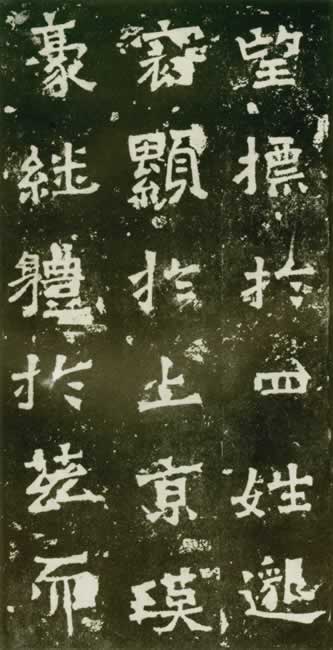 望標於四姓邈
冠顯於上京瑛
豪継體於茲而